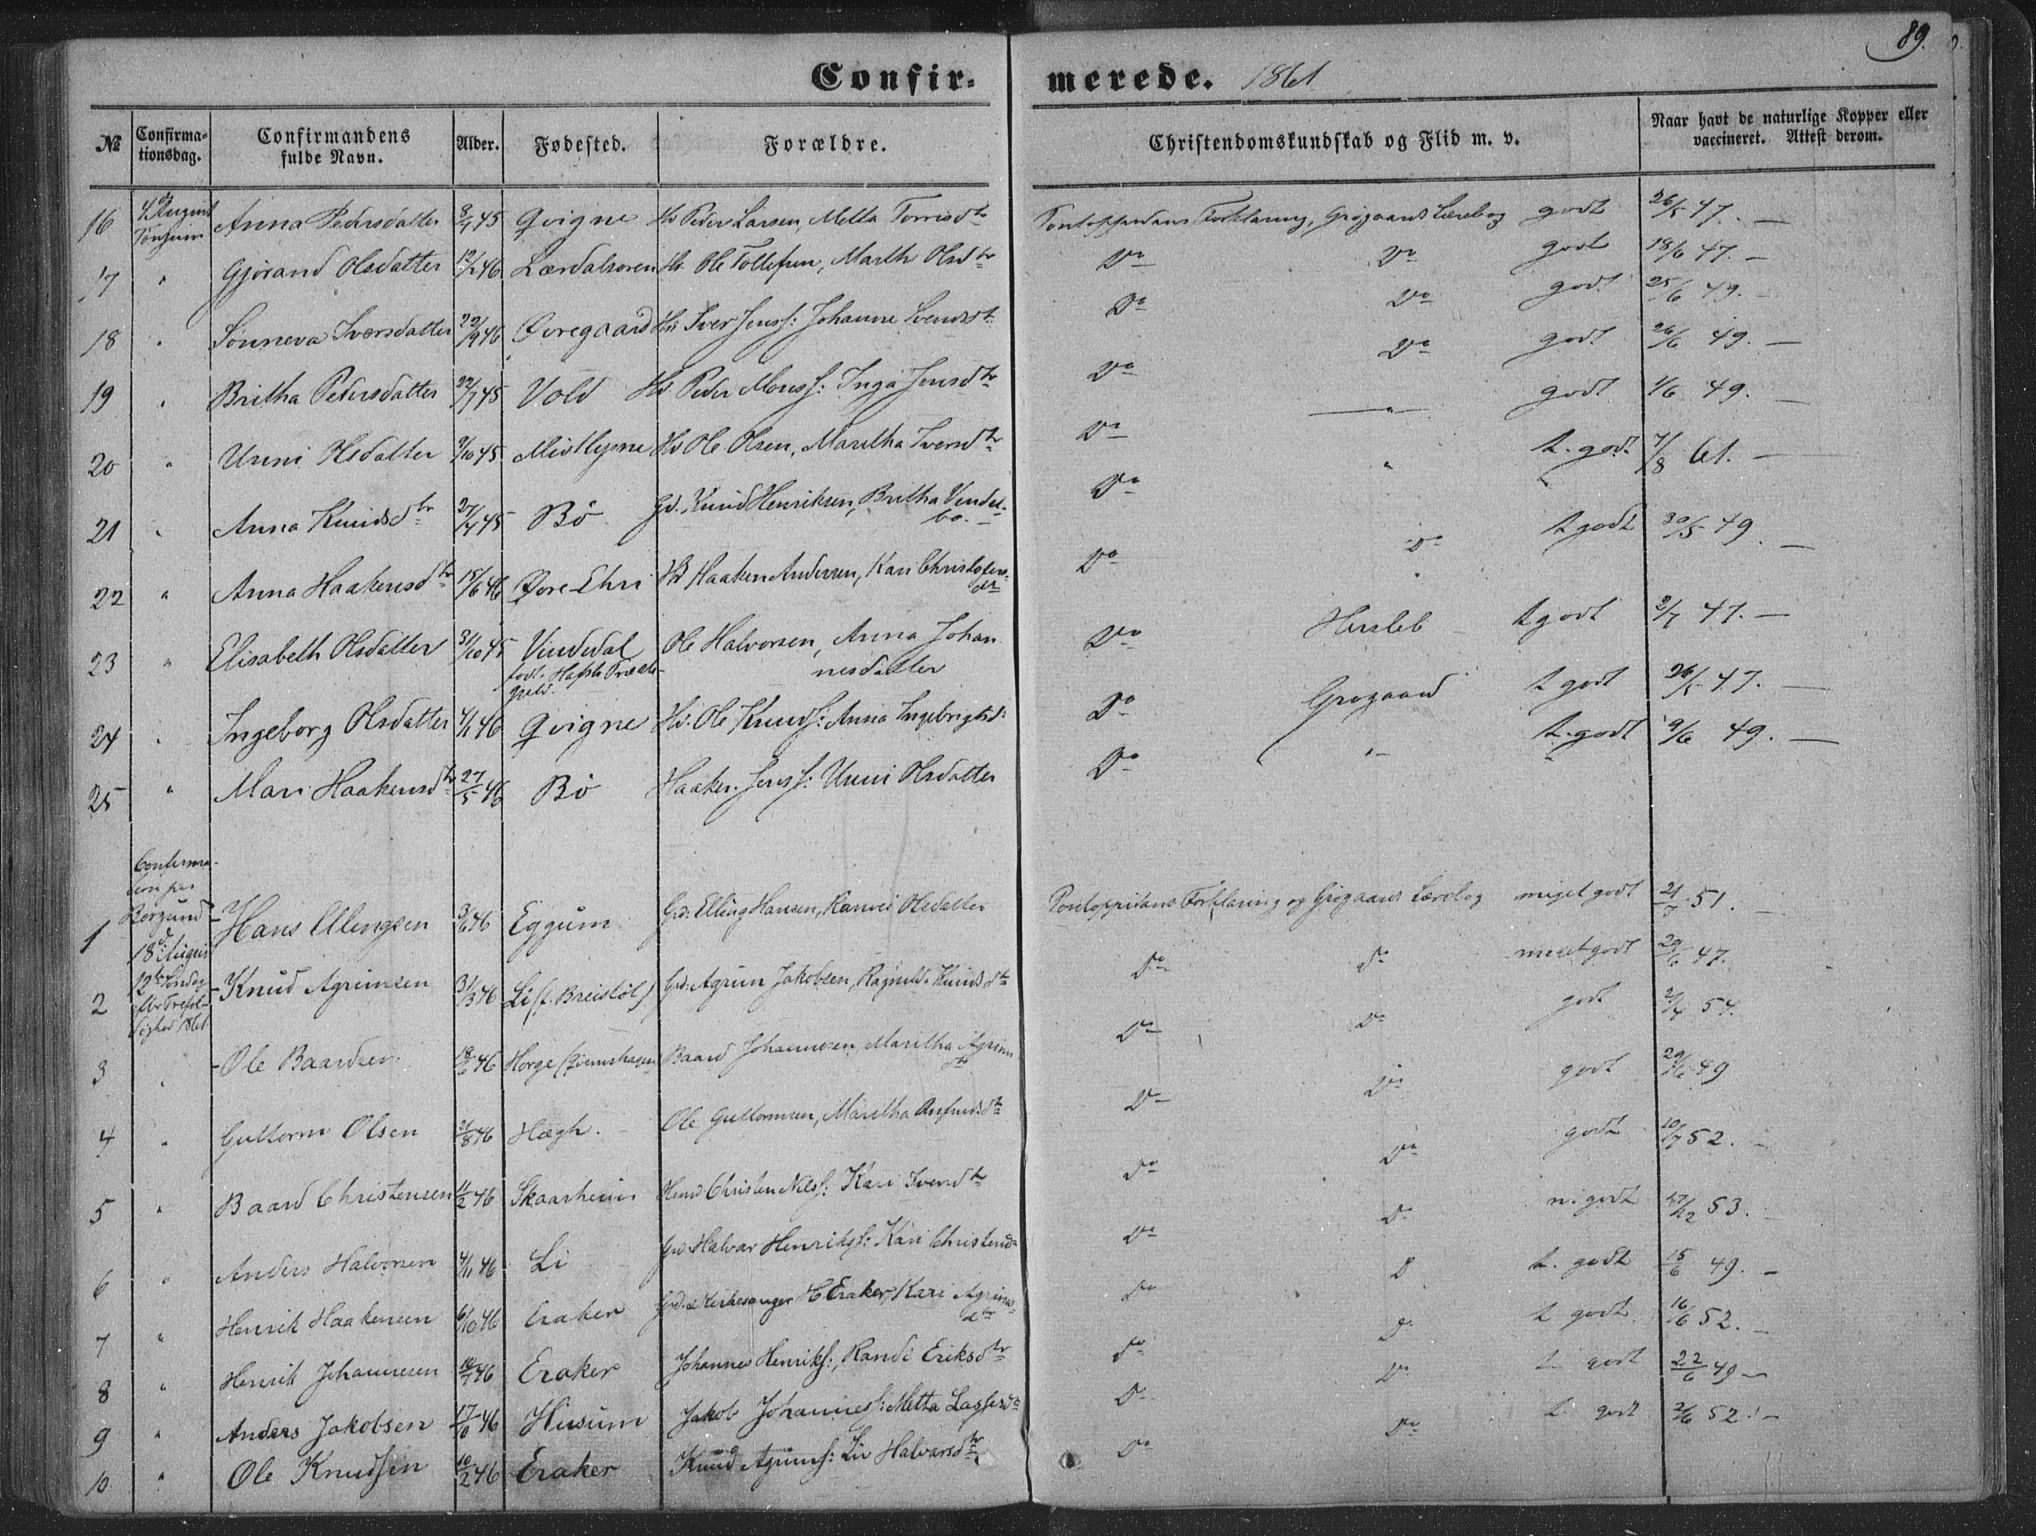 89.
Confir- merede. 1861
№ Confirma-tionsdag. Confirmandens fulde Navn. Alder. Fødested. Forældre. Christendomskundskab og Flid m. v. Naar havt de naturlige Kopper eller vaccineret. Attest derom.
16 4d August Anna Pedersdatter 45 Qvigne Hd Peder Larsen, Metta Torrisdtr Pontoppidans Forklaring, Grøgaards Lærebog godt 26/5 47. —
17 " Gjørand Olsdatter 46 Lærdalsøren Hd Ole Tollefsen, Marth Olsdtr Do Do godt 18/6 47. —
18 " Sønneva Iversdatter 22/9 46 Øvregaard Hd Iver Jensf: Johanne Svendsdtr Do Do godt 25/6 49. —
19 " Britha Pedersdatter 22/7 45 Vold Hd Peder Monsf: Inga Jensdtr Do Do godt 26/6 49. —
20 " Unni Olsdatter 9/10 45 Midtlyne Hd Ole Olsen, Maritha Iversdtr Do " godt 1/6 49. —
21 " Anna Knudsdtr 27/4 45 Bö Gd. Knud Henriksen, Britha Vendel-bo. — Do " t. godt 7/8 61. —
22 " Anna Haakensdtr 15/6 46 Øvre Ehri Hd Haaken Andersen, Kari Christofers-dtr Do Do t godt 30/5 49. —
23 " Elisabeth Olsdatter 31/10 45 Vindedal Ole Halvorsen, Anna Johan-nesdatter Do Hersleb t godt 2/7 47. —
født Hafslo Præste-gjeld.
24 " Ingeborg Olsdatter 4/1 46 Qvigne Hd. Ole Knudsf: Anna Ingebrigtsd: Do Grøgaard t godt 26/5 47. —
25 " Mari Haakensdtr 27/5 46 Bö Haaken Jensf: Unni Olsdatter Do " t. godt 9/6 49. —
Confirma-tion paa Borgund 18de August 12te Søndag efter Trefol-dighed 1861
1 Hans Ellingsen 3/6 46 Eggum Grd: Elling Hansen, Ranvei Olsdatter Pontoppidans Forklaring og Grøgaards Lærebog meget godt 21/7 51. —
2 Knud Agrimsen 31/3 46 Li (f. Breistöl) Grd: Agrim Jakobsen, Ragnild Knudsdtr Do Do meget godt 29/6 47.
3 " Ole Baardsen 18/6 46 Horge Baard Johannesen Maritha Agrims dtr Do Do godt 54.
4 " Guttorm Olsen 21/8 46 Hægh. Ole Guttormsen, Maritha Do Do godt 49
5 " Baard Christensen 11/2 46 Skaarheim Christen Nilsf: Kari Iversdtr Do Do godt 10/7 52. —
6 " Anders Halvorsen 4/11 46 Li Grd: Halvar Henriksf: Kari Christensd Do Do godt 12 53. —
7 " Henrik Haakensen 6/10 46 Eraker Grd. & Kirkesanger H. Eraker, Kari Agrims-dtr Do D t. godt 15/6 49. —
8 " Henrik Johannesen 18/7 46 Eraker Johannes Henriksf:, Randi Eriksdtr Do D. t godt 16/6 52. —
9 " Anders Jakobsen 46 Husum Jakob Johannesf: Metta Lassesd Do Do t godt 22/6 49 —
10 " Ole Knudsen 10/2 46 Eraker Knud Agrimsf: Liv Halvarsdtr Do Do t. godt 2/6 52. —